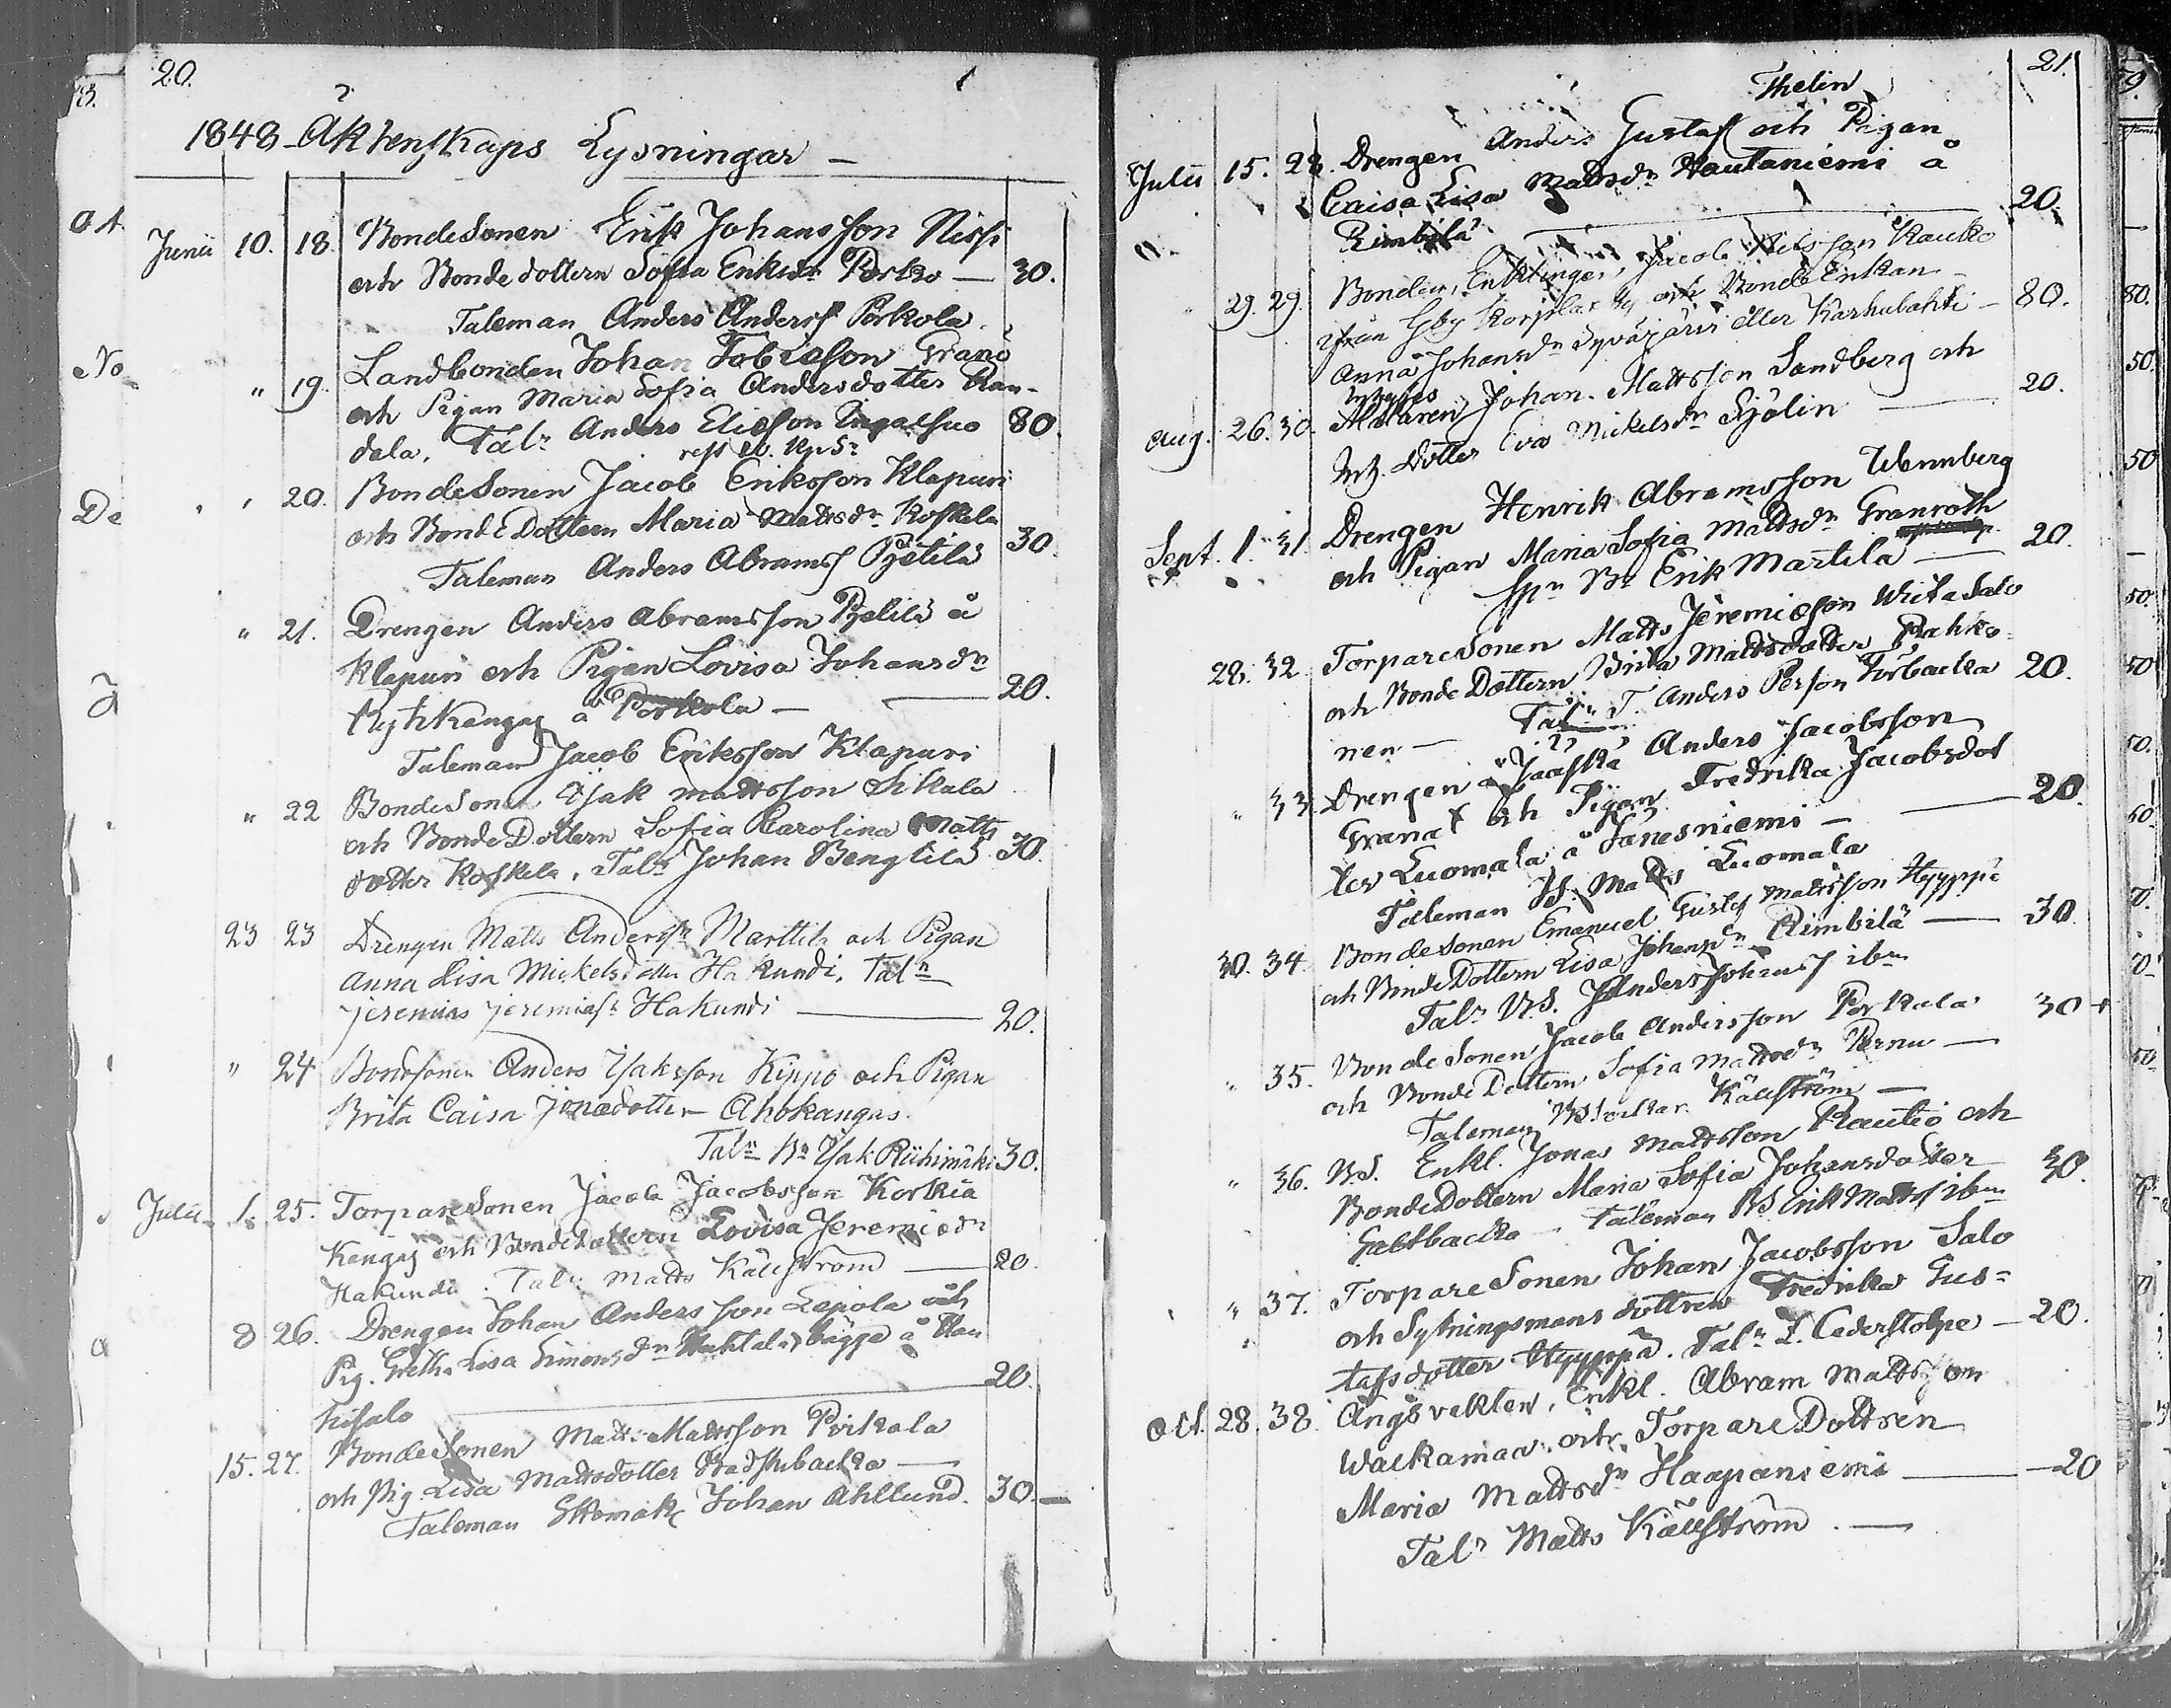 20.
1848 Äktenskaps Lysningar —
Junii 10. 18. BondeSonen Erik Johansson Nissi
och Bonde dottern Sofia Eriksdr Porko — 30.
Taleman Anders Anderss Porkola
" 19. Landbonden Johan Tobiasson Granö
och Pigan Maria Sofia Andersdotter Ran-
dala, Taln Anders Eliasson 80.
" 20. BondeSonen Jacob Eriksson Klapuri
och BondeDottern Maria Mattsdr Koskela 30.
Taleman Anders Abramss Pjetilä
" 21. Drengen Anders Abramsson Pjetilä å
Klapuri och Pigan Lovisa Johansdr
Kytökangas å Porkola — 20.
Taleman Jacob Eriksson Klapuri
" 22 BondeSonen Isak Mattsson Sikala
och BondeDottern Sofia Karolina Matts
dotter Koskela, Taln Johan Bengtilä 30.
23 23 Drengen Matts Anderssn Marttila och Pigan
Anna Lisa Mickelsdotter Hakundi, Taln
Jeremias Jeremiass Hakundi — 20.
" 24 Bondsonen Anders Isaksson Kippo och Pigan
Brita Caisa Jonædotter Ahokangas.
Taln Bn Isak Riihimäki 30.
Julii 1. 25. TorpareSonen Jacob Jacobsson Korkia
Kangas och Bondedottern Lovisa Jeremiædr
Hakundi. Taln Matts Källström — 20.
8 26. Drengen Johan Andersson Lepola och
Pig. Greta Lisa Simonsdr Huhtala, bägge å
20.
15. 27. BondeSonen Matts Mattsson Pirkola
och Pig. Lisa Mattsdotter Badstubacka —
Taleman Skomak Johan Ahllund. 30. —
21.
Thelin
Julii 15. 28. Drengen Anders Gustaf och Pigan
Caisa Lisa Mattsdr Hautaniemi å
Rimbilä 20.
" 29. 29. Bonden, Enklingen, Jacob Nilsson Kauko
ifrån Gby Korplax och BondeEnkan
Anna Johansdr Syväjärvi eller Karhulahti — 80.
Aug. 26. 30. Målaren, Johan Mattsson Sandberg och
Dotter Eva Mickelsdr Sjölin — 20.
Sept. 1. 31. Drengen Henrik Abramsson Wennberg
och Pigan Maria Sofia Mattsdr Granroth
Bn Erik Martila — 20.
28. 32. TorpareSonen Matts Jeremiasson Wiitasalo
och BondeDottern Brita Mattsdotter Pahko-
nen — Taln T. Anders Person Torbacka 20.
" 33. Drengen å Jaaska Anders Jacobsson
Granat och Pigan Fredrika Jacobsdot
ter Luomala å Fanesniemi — 20.
Taleman Matts Luomala
30. 34. BondeSonen Emanuel Gustaf Mattsson Hyyppä
och BondeDottern Lisa Johansdr Rimbilä — 30.
Taln B.S. Anders Johanss ibm
" 35. BondeSonen Jacob Andersson Porkola 30
och BondeDottern Sofia Mattsdr Pernu —
Taleman Källström —
" 36. B.S. Enkl. Jonas Mattsson Rautio och
BondeDottern Maria Sofia Johansdotter 30.
Galtbacka — Taleman BS Erik Mattss ibm
" 37. TorpareSonen Johan Jacobsson Salo
och Sytningsmans dottren Fredrika Gus-
tafsdotter Hyyppä. Taln L. Cederstolpe — 20.
Oct. 28. 38. Ängsvakten, Enkl. Abram Mattsson
Wackamaa och TorpareDottren
Maria Mattsdr Haapaniemi — 20
Taln Matts Källström. —